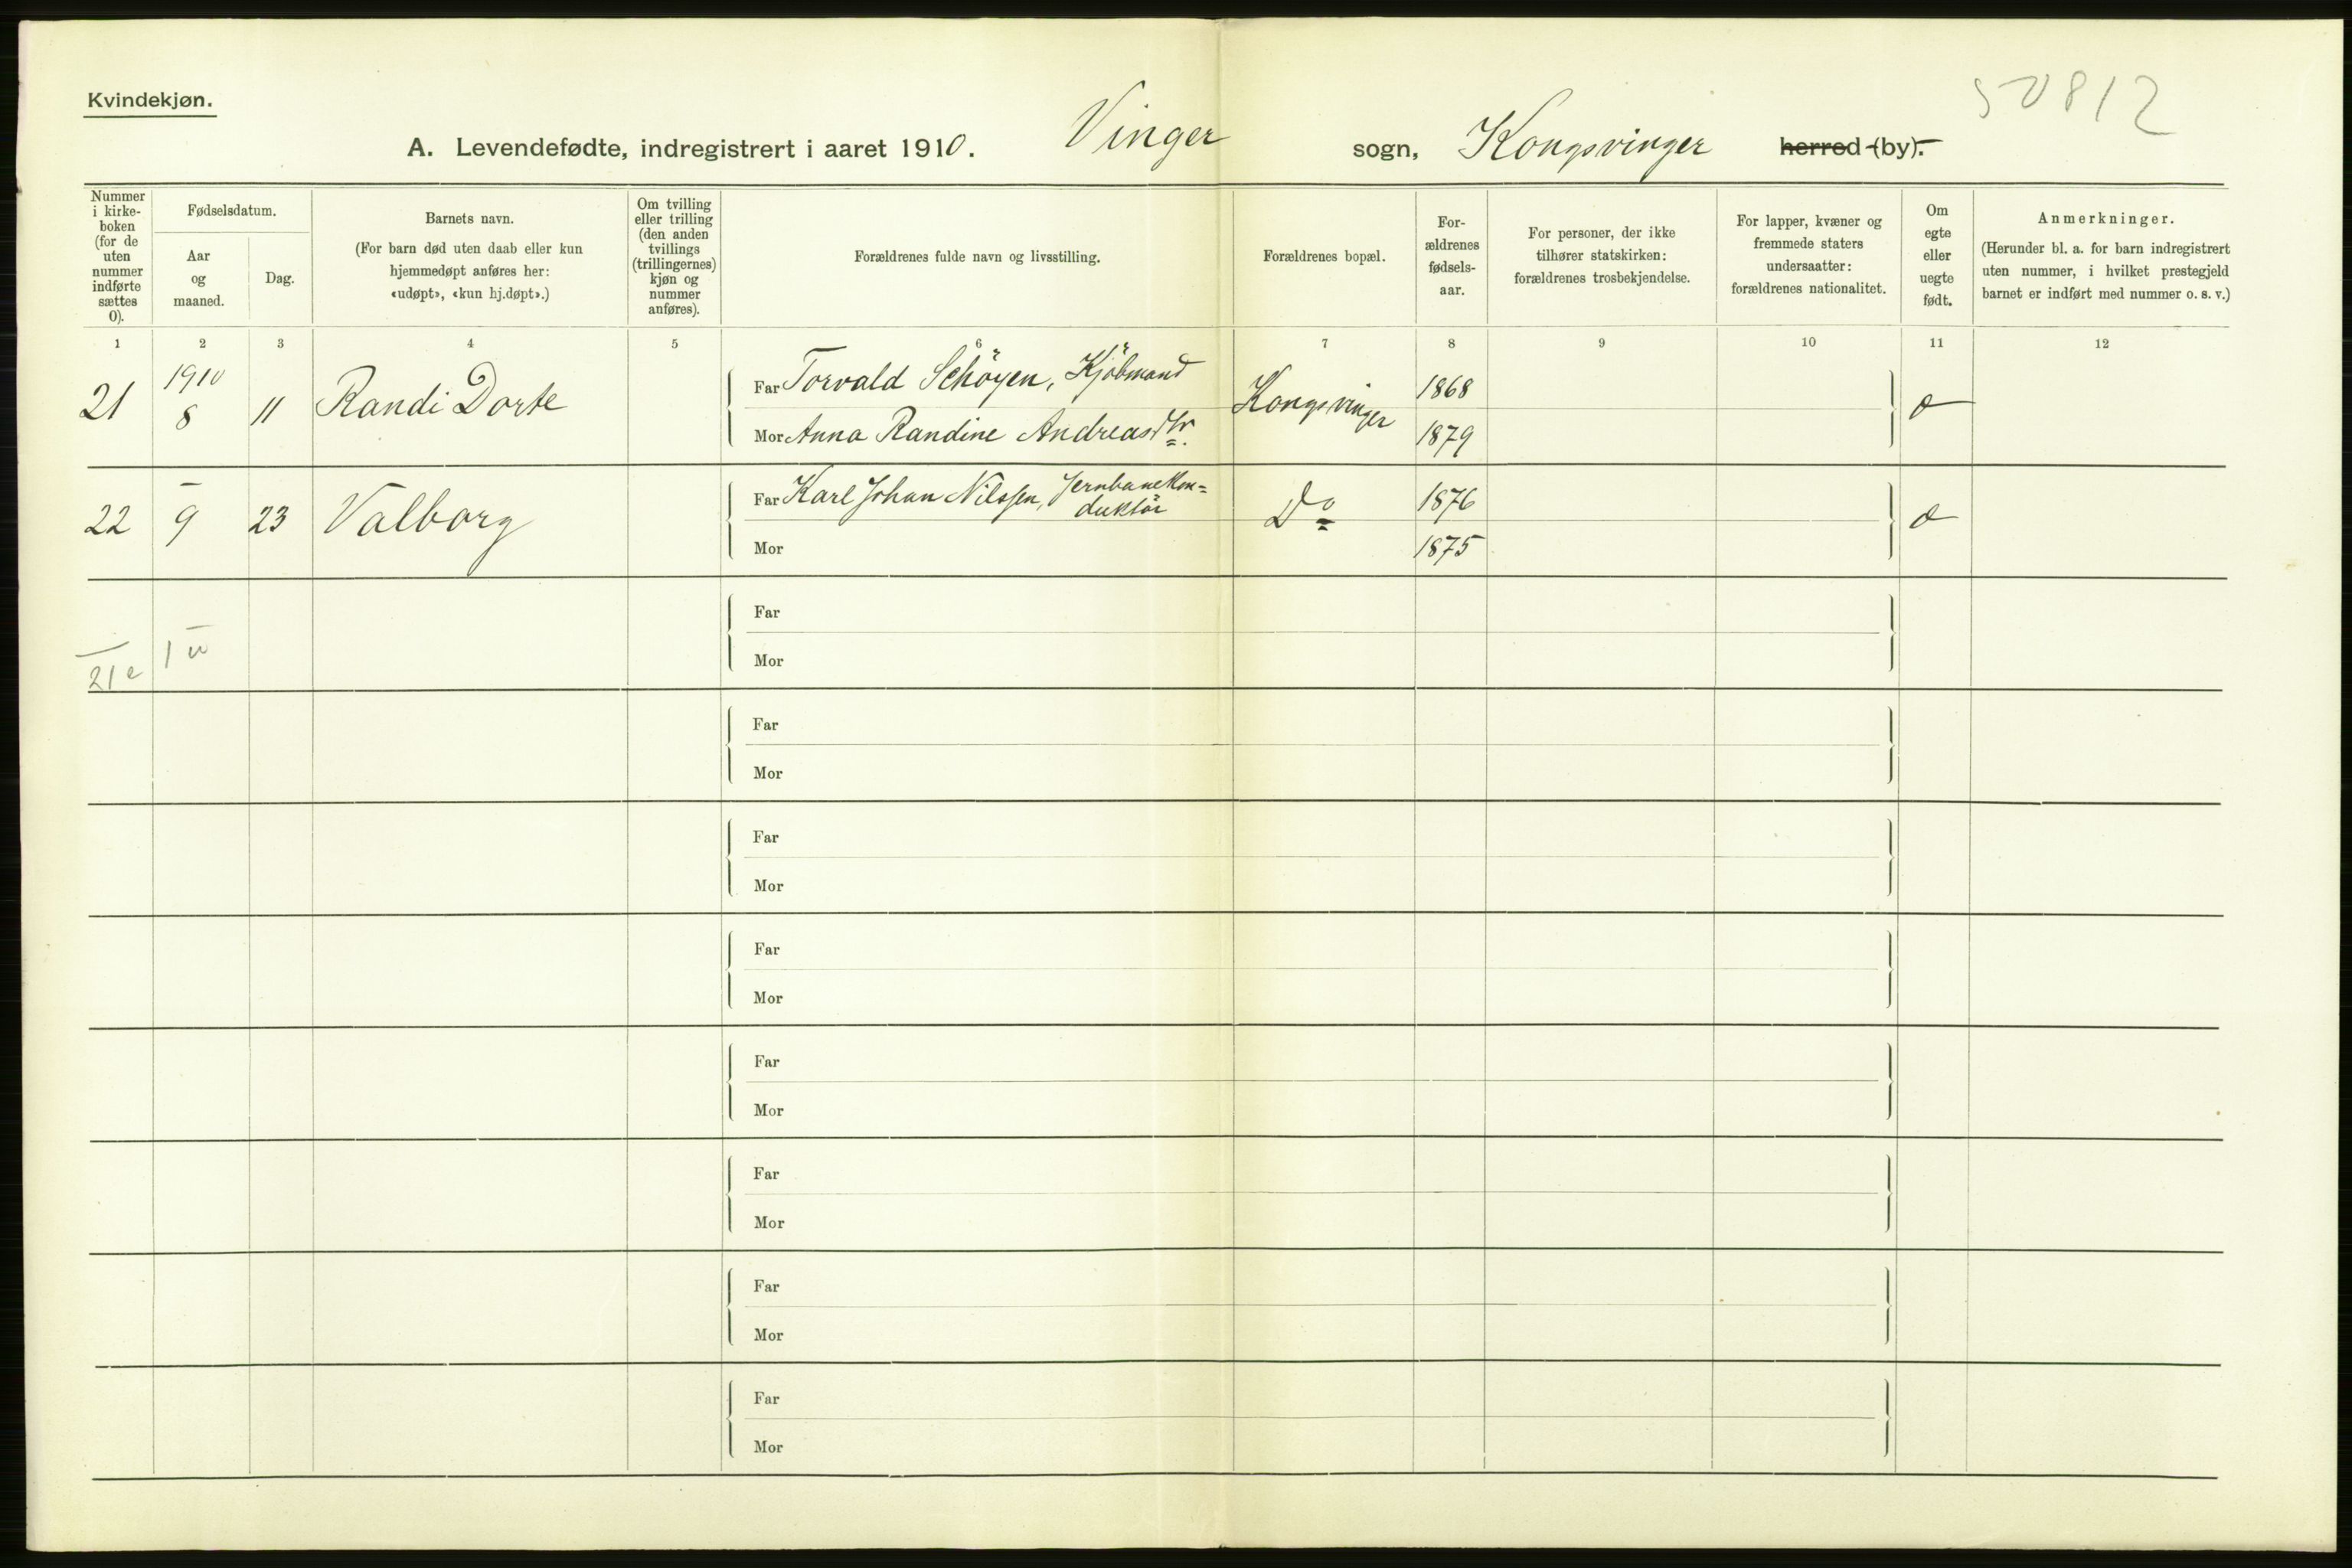 Kvindekjøn.
50812
A. Levendefødte, indregistrert i aaret 1910. Vinger sogn, Kongsvinger herred (by).
Nummer i kirke-boken (for de uten nummer indførte sættes 0).
Fødselsdatum.
Aar og maaned.
Dag.
Barnets navn.
(For barn død uten daab eller kun hjemmedøpt anføres her: «udøpt», «kun hj.døpt».)
Om tvilling eller trilling (den anden tvillings (trillingernes) kjøn og nummer anføres).
Forældrenes fulde navn og livsstilling.
Forældrenes bopæl.
For-ældrenes fødsels-aar.
For personer, der ikke tilhører statskirken: forældrenes trosbekjendelse.
For lapper, kvæner og fremmede staters undersaatter: forældrenes nationalitet.
Om egte eller uegte født.
Anmerkninger.
(Herunder bl. a. for barn indregistrert uten nummer, i hvilket prestegjeld barnet er indført med nummer o. s. v.)
1 2 3 4 5 6 7 8 9 10 11 12
21 1910 8 11 Randi Dorte Far Torvald Schöyen, Kjöbmand Kongsvinger 1868
Mor Anna Randine Andreasdtr. 1879
22 – 9 23 Valborg Far Karl Johan Nilssen, Jernbanekon=duktör Do 1876
Mor 1875
Far
21e 1u Mor
Far
Mor
Far
Mor
Far
Mor
Far
Mor
Far
Mor
Far
Mor
Far
Mor